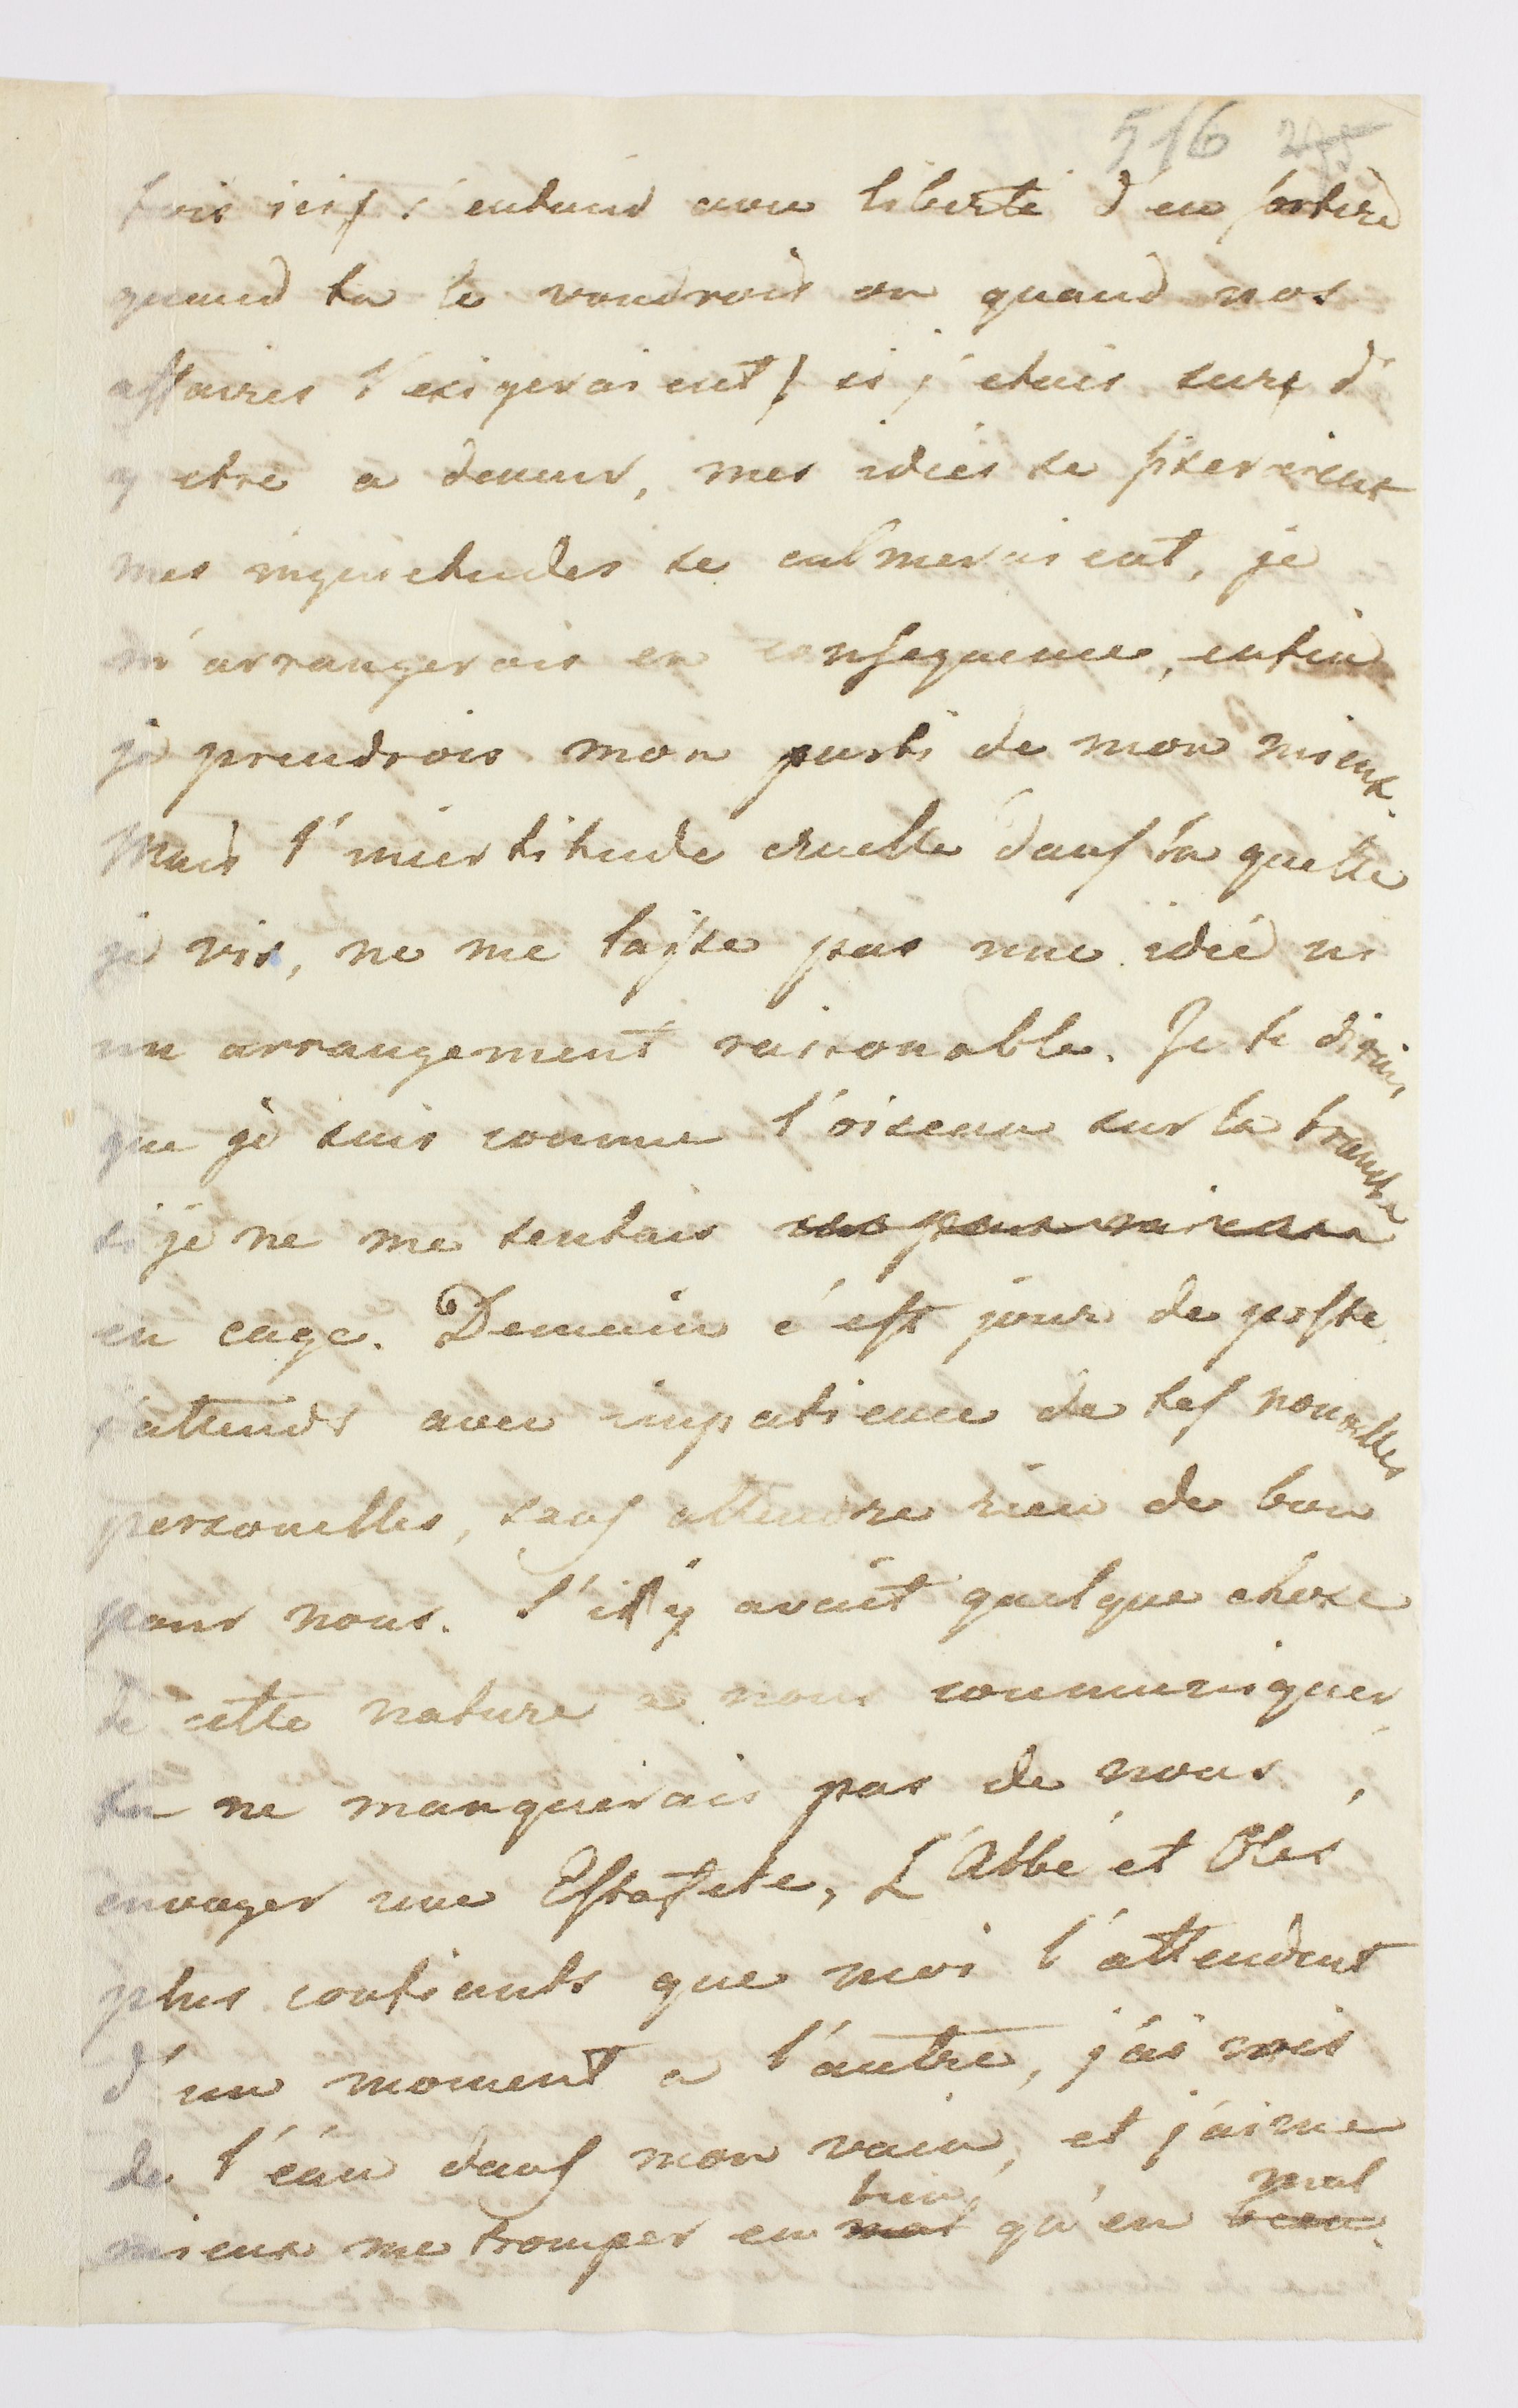 516 275
trois ici s'entend avec liberté d'en sortire
quand tu le voudrois ou quand nos
affaires l'exigeraient) si j'etais sure d'
y etre a demeur, mes idiés se fixeraient
mes inquietudes se calmeraient, je
m'arrangerais en consequence, enfin
je prendrois mon parti de mon mieux.
Mais l'incertitude cruelle dans la quelle
je vis, ne me laisse pas une idié ni
un arrangement raisonable. Je te dirais
que je suis comme l'oiseau sur la branche
si je ne me sentais
en cage. Demain c'est jour de poste
j'attends avec impatience de tes nouvelles
personelles, sans attendre rien de bon
pour nous. S'il y avait quelque chose
de cette nature a nous communiquer
tu ne manquerais pas de nous
envoyer une Estafete, L'Abbé et Oles
plus confiants que moi l'attendent
d'un moment a l'autre, j'ai mis
de l'éau dans mon vain, et j'aime
bien mal
mieux me tromper en mal qu'en bien.